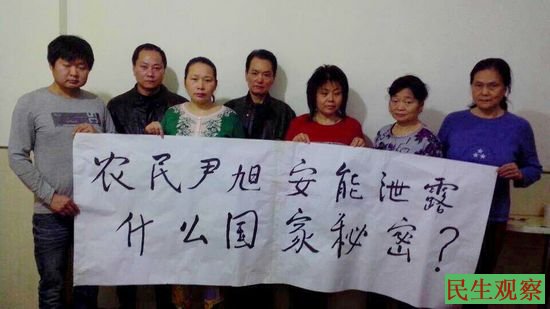 农民尹旭安能泄露
什么国家秘密？
民生观察